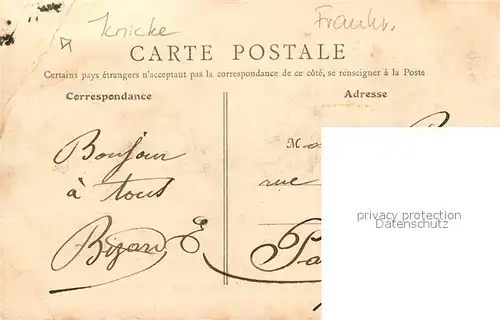 Knicke Frankr.
CARTE POSTALE
Certains pays étrangers n'acceptant pas la correspondance de ce côté, se renseigner à la Poste
Correspondance
Adresse
Bonjour
à tous
M
rue
Pa
privacy protection
Datenschutz